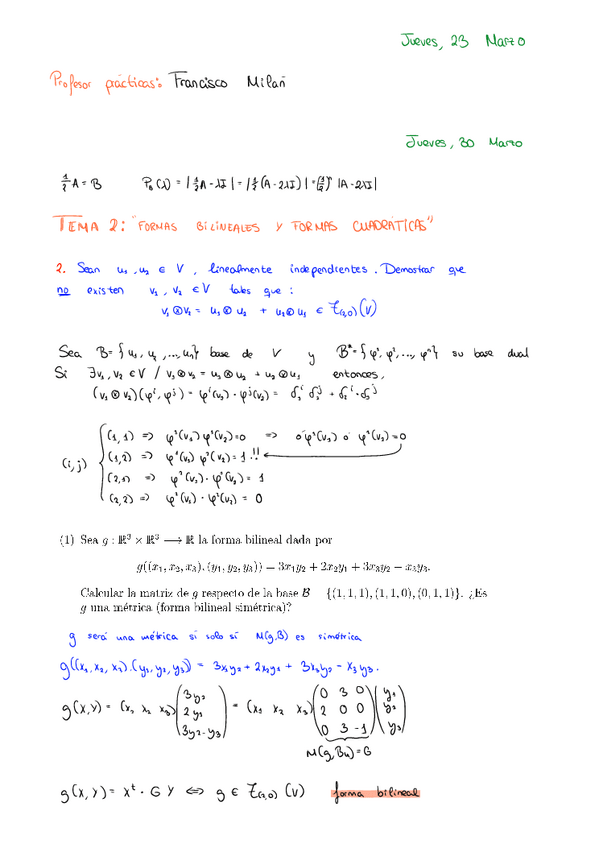 Jueves, 23 Marzo
Profesor prácticas: Francisco Milán
Jueves, 30 Marzo
½A = B P_B(λ) = |½A - λI| = |½(A - 2λI)| = (½)ⁿ |A - 2λI|
TEMA 2: "FORMAS BILINEALES Y FORMAS CUADRATICAS"
2. Sean u₁, u₂ ∈ V, linealmente independientes. Demostrar que
no existen v₁, v₂ ∈ V tales que:
v₁⊗v₂ = u₁⊗u₂ + u₂⊗u₁ ∈ T₍₂,₀₎(V)
Sea B={u₁, u₂, ..., uₙ} base de V y B*={φ¹, φ², ..., φⁿ} su base dual
Si ∃v₁, v₂ ∈ V / v₁⊗v₂ = u₁⊗u₂ + u₂⊗u₁ entonces,
(v₁⊗v₂)(φⁱ, φʲ) = φⁱ(v₁)·φʲ(v₂) = δ₁ⁱ δ₂ʲ + δ₂ⁱ·δ₁ʲ
(i,j) (1,1) => φ¹(v₁) φ¹(v₂)=0 => o φ¹(v₁) o φ¹(v₂)=0
(1,2) => φ¹(v₁) φ²(v₂)=1 !!
(2,1) => φ²(v₁)·φ¹(v₂) = 1
(2,2) => φ²(v₁)·φ²(v₂) = 0
(1) Sea g : ℝ³ × ℝ³ ⟶ ℝ la forma bilineal dada por
g((x₁, x₂, x₃), (y₁, y₂, y₃)) = 3x₁y₂ + 2x₂y₁ + 3x₃y₂ − x₃y₃.
Calcular la matriz de g respecto de la base B = {(1, 1, 1), (1, 1, 0), (0, 1, 1)}. ¿Es
g una métrica (forma bilineal simétrica)?
g será una métrica si solo si M(g,B) es simétrica
g((x₁, x₂, x₃),(y₁, y₂, y₃)) = 3x₁y₂ + 2x₂y₁ + 3x₃y₂ - x₃y₃.
g(x,y) = (x₁ x₂ x₃) (3y₂ 2y₁ 3y₂-y₃) = (x₁ x₂ x₃) (0 3 0 2 0 0 0 3 -1) (y₁ y₂ y₃)
M(g,Bu)=G
g(x,y) = xᵗ · G y ⇔ g ∈ T₍₂,₀₎(V) forma bilineal